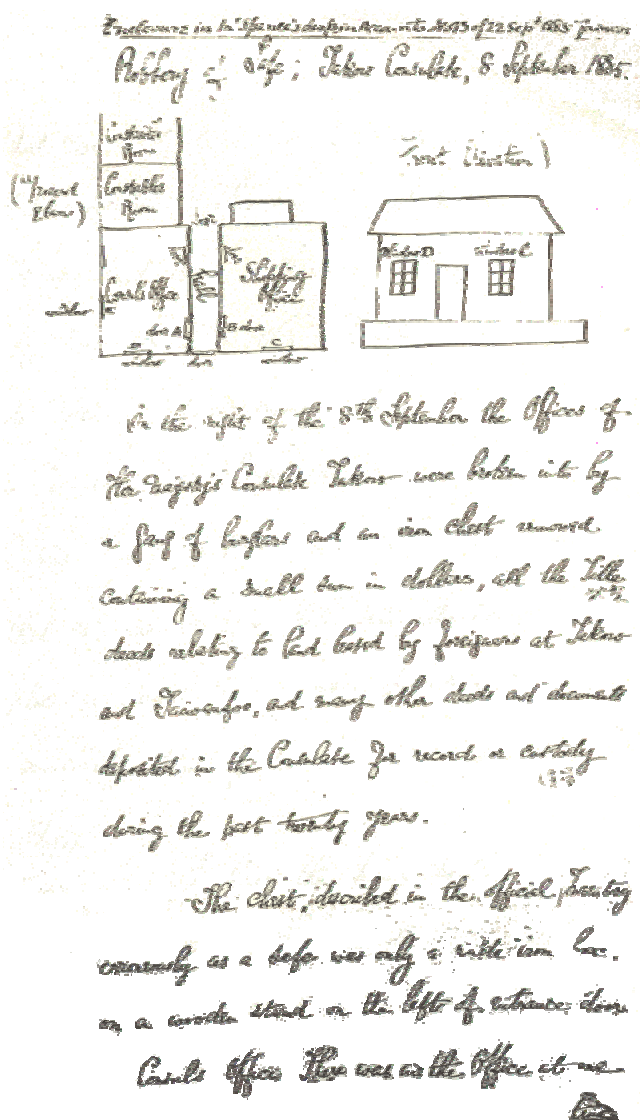 Enclosure in Mr Spence's despatch Accounts No 13 of 22 Sept 1885
Robbery of Safe; Takow Consulate, 8 September 1885.
Constables
Room
Constables
Room
(Ground
Floor)
Front Elevation)
Window D
Window C
Consul's Office
Shipping
Office
window
door A
B door
window
door
window
In the night of the 8th September the Offices of
Her Majesty's Consulate Takow were broken into by
a gang of burglars and an iron chest removed
containing a small sum in dollars, all the Title
deeds relating to land leased by foreigners at Takow
and Taiwanfoo, and many other deeds and documents
deposited in the Consulate for record or custody
during the past twenty years.
The chest, described in the official Inventory
erroneously as a safe was only a iron box.
on a wooden stand on the left of entrance door
Consul's Office There was in the Office at